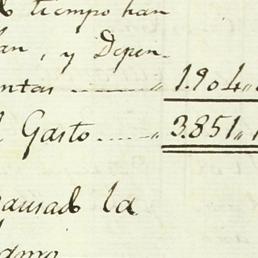 tiempo han
an, y Depen-
ntas ——— „ 1.904„
l Gasto.— „ 3.851„
ausado la